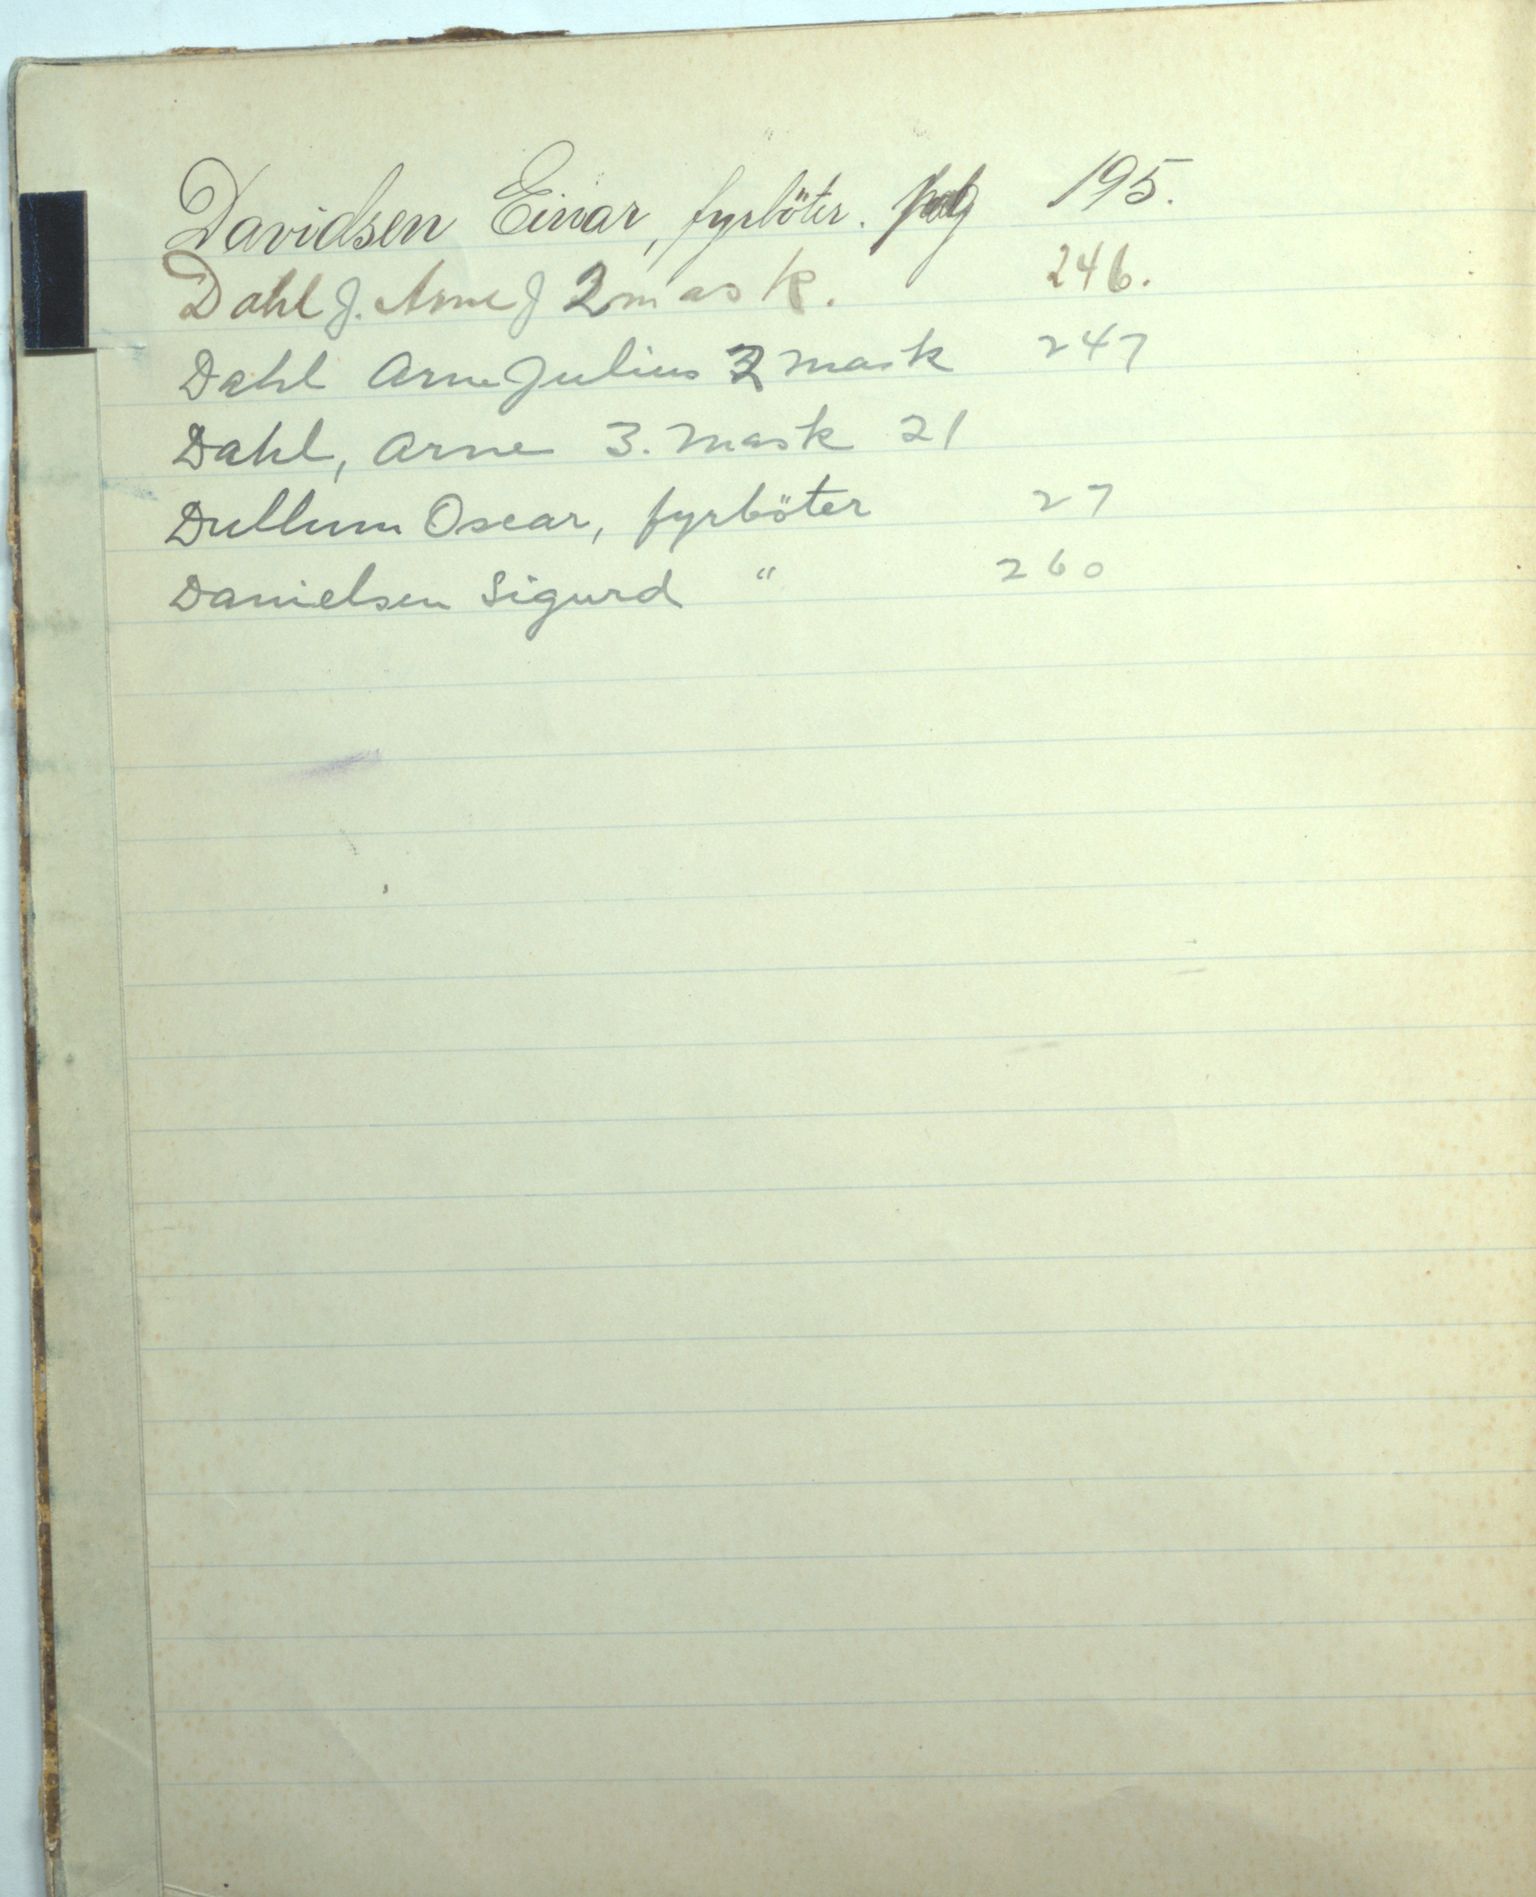 Davidsen Einar, fyrböter. pag 195.
Dahl J. Arne J 2 mask. 246.
Dahl Arne Julius 2 mask 247
Dahl, Arne 3. mask 21
Dullum Oscar, fyrböter 27
Danielsen Sigurd " 260